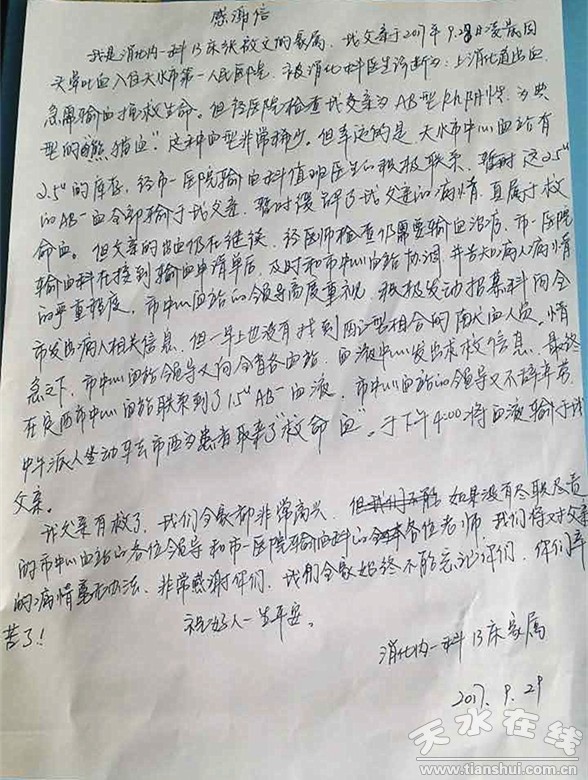 感谢信
我是消化内一科13床张敬文的家属，我父亲于2017年9.28日凌晨因
突常吐血入住天水市第一人民医院，被消化一科医生诊断为：上消化道出血，
急需输血抢救生命。但经医院检查我父亲为AB型Rh阴性，为典
型的“熊猫血”这种血型非常稀少。但幸运的是，天水市中心血站有
2.5u的库存，经市一医院输血科值班医生的积极联系，暂时这2.5u
的AB-血全部输于我父亲，暂时缓解了我父亲的病情，真属于救
命血。但父亲的出血仍在继续，经医师检查仍需要输血治疗，市一医院
输血科在接到输血申请单后，及时和市中心血站协调，并告知病人病情
的严重程度，市中心血站的领导高度重视，积极发动招募科向全
市发出病人相关信息，但一早上也没有找到同血型相合的献血人员，情
急之下，市中心血站领导又向全省各血站，血液中心发出求救信息，最终
在定西市中心血站联系到了1.5u AB-血液，市中心血站的领导又不辞辛劳，
中午派人坐动车去定西为患者取来了“救命血”，于下午4:00将血液输于我
父亲。
我父亲有救了，我们全家都非常高兴，但我们不能如果没有尽职尽责
的市中心血站的各位领导和市一医院输血科的各位老师，我们将对父亲
的病情毫无办法，非常感谢你们，我们全家始终不能忘记你们，你们辛
苦了！
祝好人一生平安。
消化内一科13床家属
2017.9.29
天水在线
www.tianshui.com.cn